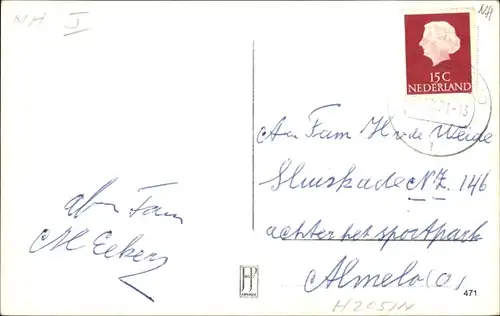 NH I
NH
15 C
NEDERLAND
Aan Fam H v de Weide
Sluiskade N.Z. 146
achter het sportpark
Almelo (O)
afz Fam
Eekers
JP
471
H2051H